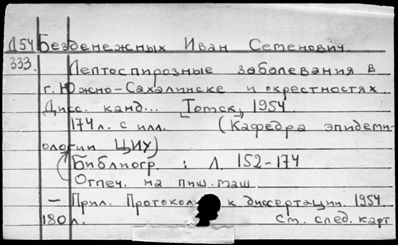 Д54 Безденежных Иван Семенович.
333. Лептоспирозные заболевания в
г. Южно-Сахалинске и окрестностях
Дисс. канд... [Томск, 1954.
174 л. с илл. (Кафедра эпидеми-
ологии ЦИУ)
Библиогр. : л. 152-174
Отпеч. на пиш. маш.
— Прил. Протокол к диссертации. 1954
180 л. См. след. карт